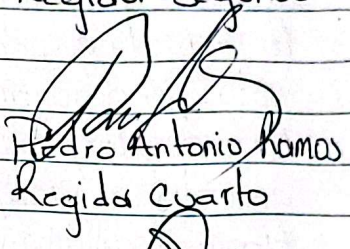 Pedro Antonio Ramos
Regidor Cuarto